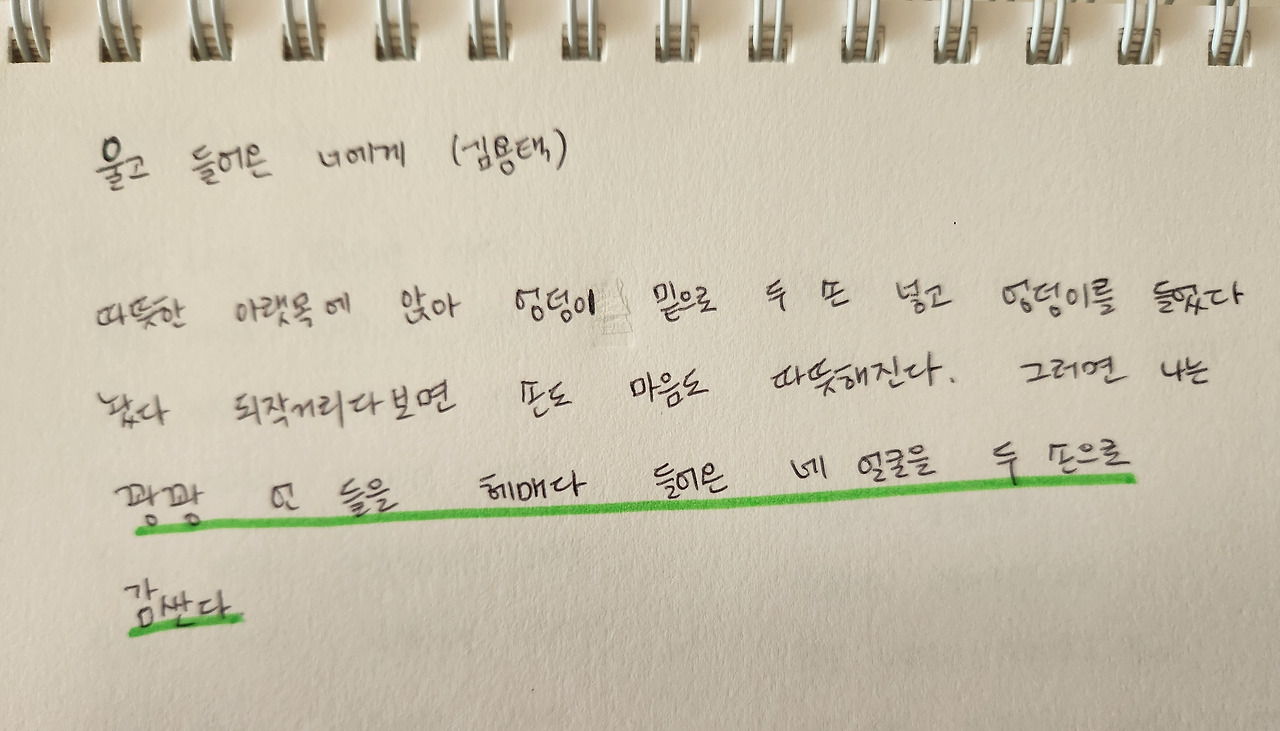 울고 들어온 너에게 (김용택)
따뜻한 아랫목에 앉아 엉덩이 밑으로 두 손 넣고 엉덩이를 들었다
놨다 되작거리다보면 손도 마음도 따뜻해진다. 그러면 나는
꽝꽝 언 들을 헤매다 들어온 네 얼굴을 두 손으로
감싼다